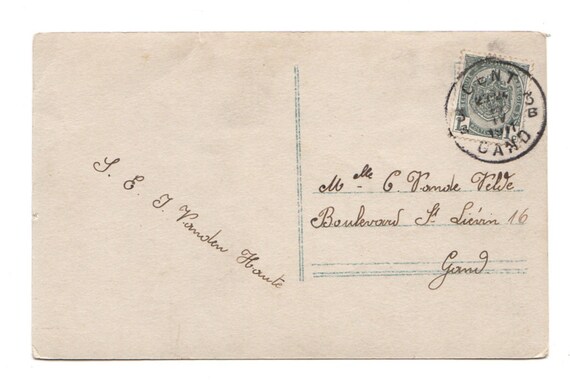 S. E. J. Vanden Haute
GENT
3B
1911
GAND
1
Mlle C. Vande Velde
Boulevard St. Liévin 16
Gand